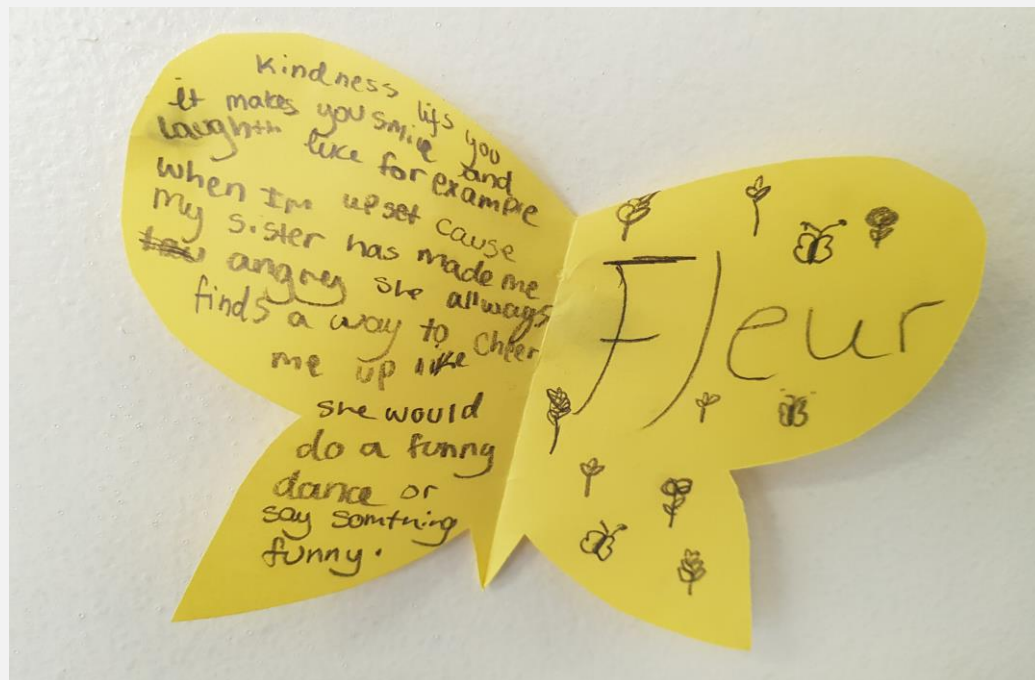 Kindness lifs you
it makes you smile and
laugh like for example
when Im upset cause
my sister has made me
angrey she allways
finds a way to cheer
me up like
she would
do a funny
dance or
say somthing
funny.
Fleur